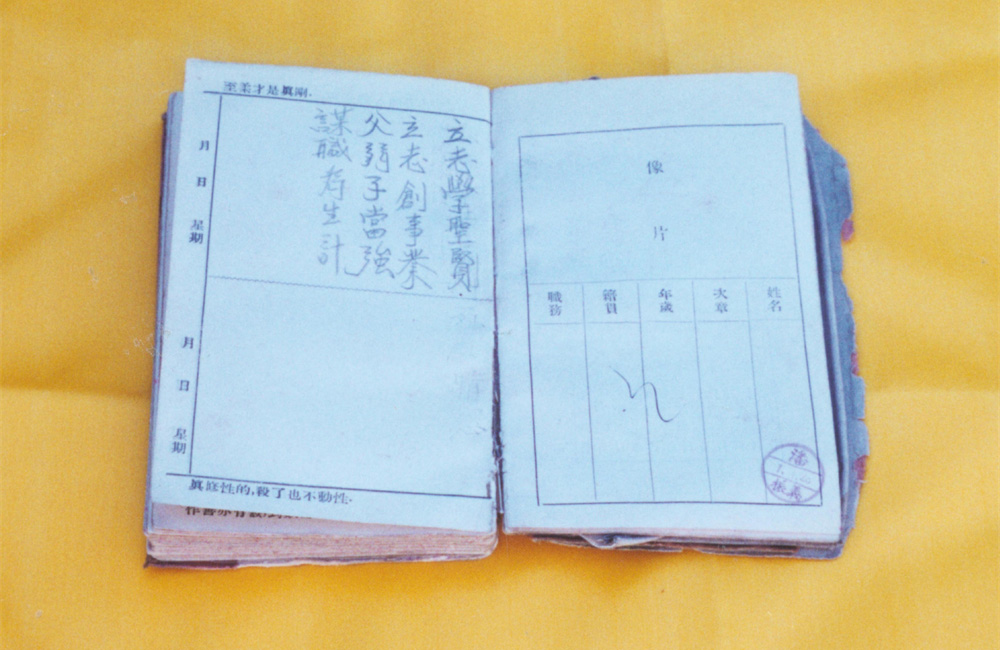 至柔才是眞剛.
立志學聖賢
立志創事業
父弱子當強
謀職生計
月
日
星期
月
日
星期
眞性的,殺了也不動性.
像片
姓名
次章
年歲
籍貫
職務
潘
振義